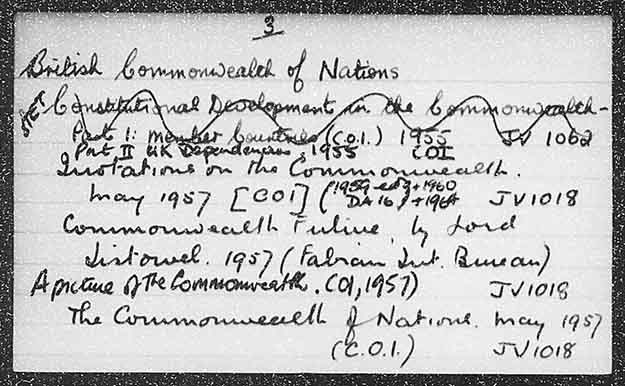 3
British Commonwealth of Nations
STET Constitutional Development in the Commonwealth -
Part I: Member Countries (C.O.I.) 1955 JV 1062
Part II UK Dependencies, 1955 COI
Quotations on the Commonwealth.
May 1957 [COI] (1959 edn + 1960 DA 16) + 1964 JV1018
Commonwealth Future by Lord
Listowel. 1957 (Fabian Int. Bureau)
A picture of the Commonwealth. COI, 1957) JV1018
The Commonwealth of Nations. May 1957
(C.O.I.) JV1018